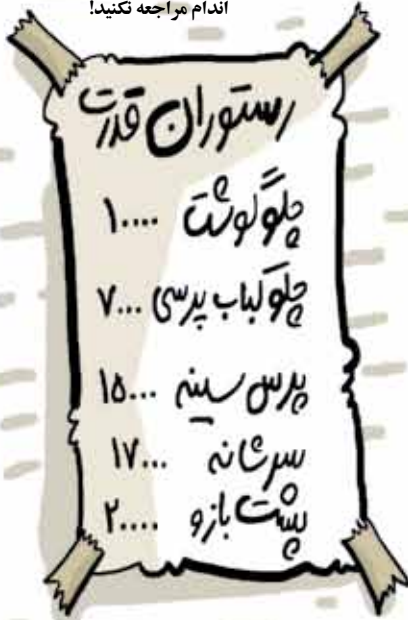 اندام مراجعه نکنید!
رستوران قدرت
چلوگوشت ۱۰۰۰۰
چلوکباب پرسی ۷۰۰۰
پرس سینه ۱۵۰۰۰
سرشانه ۱۷۰۰۰
پشت بازو ۲۰۰۰۰